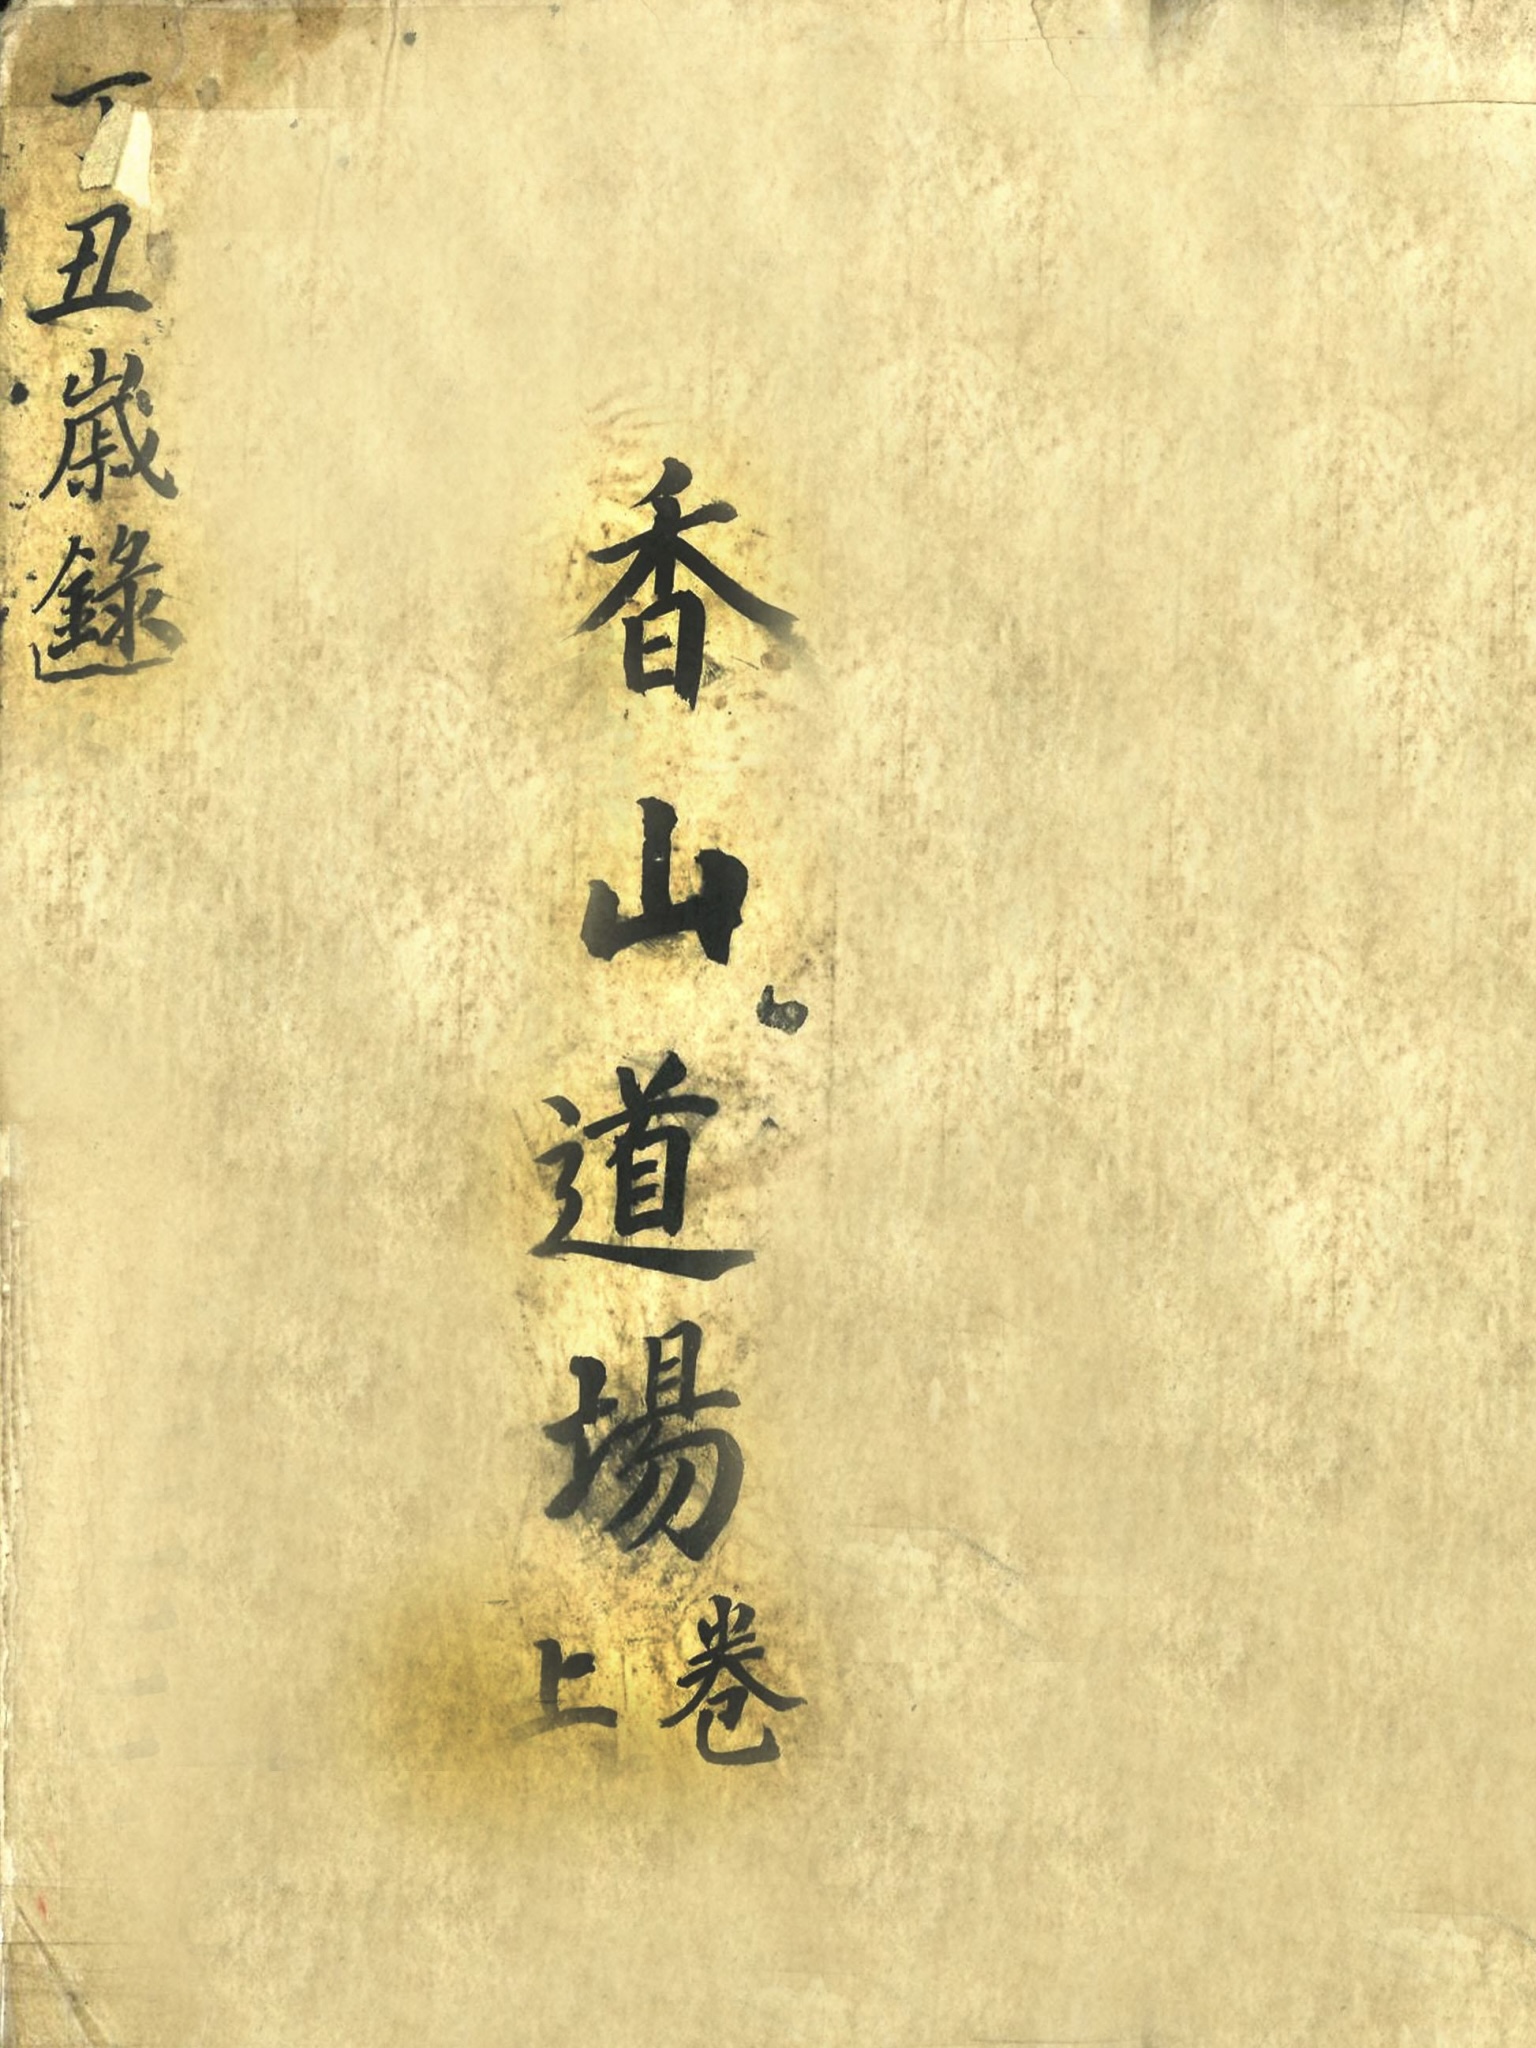 香山道場卷上
丁丑歲錄